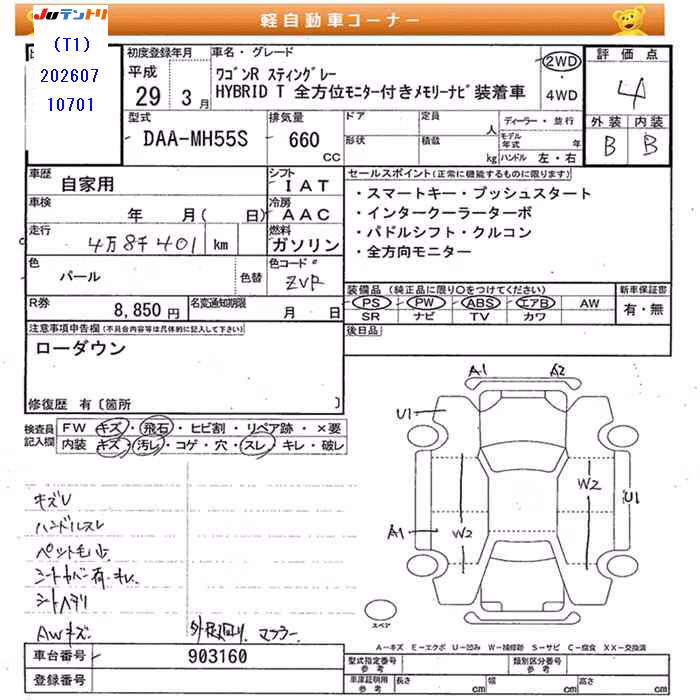 JUテントリ
軽自動車コーナー
(T1)
202607
10701
初度登録年月
平成
29 3月
車名・グレード
ワゴンR スティングレー
HYBRID T 全方位モニター付きメモリーナビ装着車
2WD
4WD
評価点
4
外装 内装
B B
型式
DAA-MH55S
排気量
660
CC
ドア
定員
人
形状
積載
kg
ディーラー・並行
モデル年式 年
ハンドル 左・右
車歴
自家用
シフト
IAT
車検
年 月( 日)
冷房
AAC
走行
4万8千401 km
燃料
ガソリン
色
パール
色替
色コード
ZVR
R券
8,850円
名変通知期限
月 日
セールスポイント(正常に機能するものに限ります)
・スマートキー・プッシュスタート
・インタークーラーターボ
・パドルシフト・クルコン
・全方向モニター
装備品(純正品に限り○をつけてください)
新車保証書
PS PW ABS エアB AW
SR ナビ TV カワ
有・無
後日品
注意事項申告欄(不具合内容等は具体的に記入して下さい)
ローダウン
修復歴 有〔箇所 〕
検査員記入欄
FW キズ・飛石・ヒビ割・リペア跡・×要
内装 キズ・汚レ・コゲ・穴・スレ・キレ・破レ
キズV
ハンドルスレ
ペット毛少
シートカバー有・キレ
シートヘタリ
AWキズ
外品 マフラー
A1 A2
U1
W2
U1
A1
W2
スペア
A-キズ E-エクボ U-凹み W-補修跡 S-サビ C-腐食 XX-交換済
車台番号 903160
登録番号
型式指定番号 参考
類別区分番号 参考
車庫証明用 参考
長さ cm 幅 cm 高さ cm